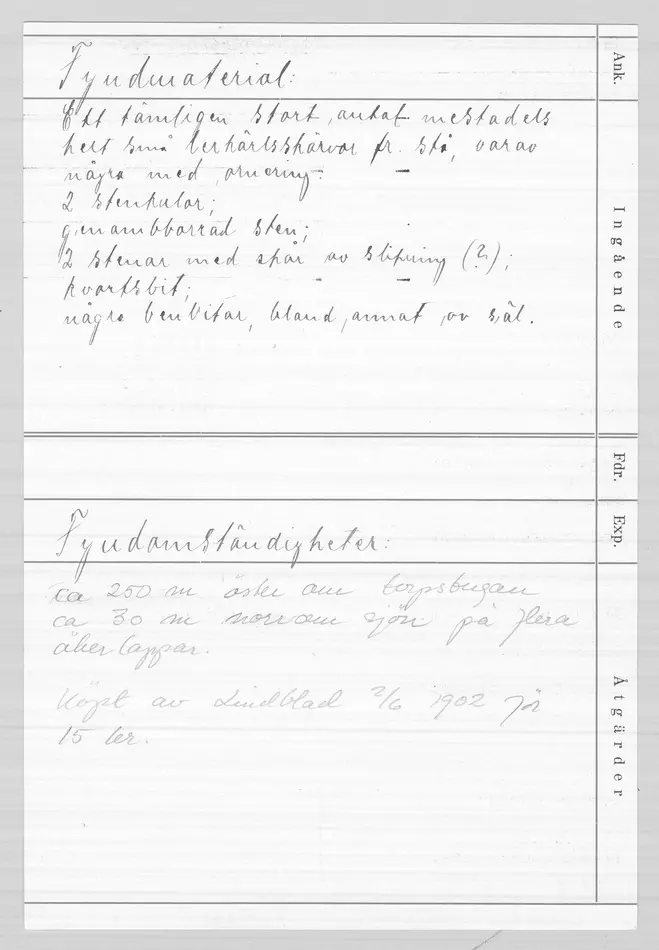 Fyndmaterial:
Ett tämligen stort, antal mestadels
helt små lerkärlsskärvor fr. stå, varav
några med ornering:
2 stenkulor;
genomborrad sten;
2 stenar med spår av slipning (?);
kvartsbit;
några benbitar, bland annat av säl.
Fyndomständigheter:
ca 250 m öster om torpstugan
ca 30 m norr om sjön på flera
åkerlappar.
Köpt av Lindblad 2/6 1902 för
15 kr.
Ank.
Ingående
Fdr.
Exp.
Åtgärder